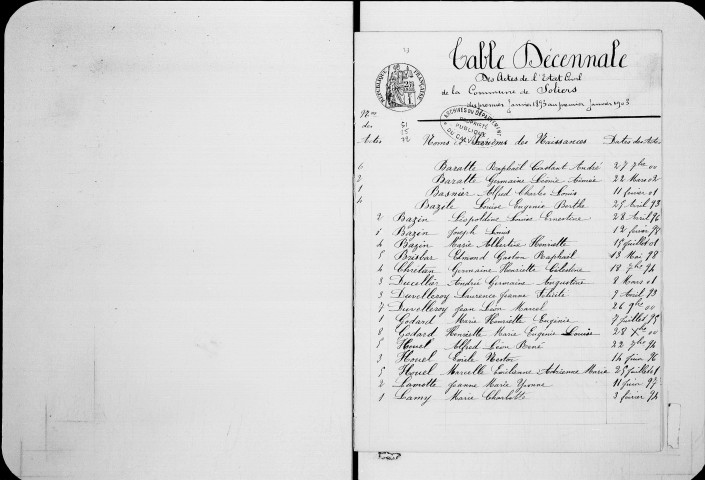 Table Décennale
Des Actes de l'Etat Civil
de la Commune de Soliers
du premier Janvier 1893 au premier Janvier 1903
RÉPUBLIQUE FRANÇAISE
ARCHIVES DU DÉPARTEMENT DU CALVADOS
PROPRIÉTÉ PUBLIQUE
Nos des Actes Noms et Prénoms des Naissances Dates des Actes
6 Baratte Raphaël Constant André 27 7bre 00
3 Baratte Germaine Léonie Aimée 22 Mars 02
1 Basnier Alfred Charles Louis 11 février 01
4 Bazile Louise Eugenie Berthe 25 Avril 93
2 Bazin Léopoldine Louise Ernestine 28 Avril 96
1 Bazin Joseph Louis 12 février 98
4 Bazin Marie Albertine Henriette 15 juillet 01
5 Brisbar Edmond Gaston Raphaël 13 Mai 98
4 Chrétien Germaine Henriette Célestine 18 7bre 94
3 Ducellier André Germaine Augustine 8 Mars 01
3 Duvelleroy Laurence Jeanne Felicité 9 Avril 93
2 Duvelleroy Jean Léon Marcel 26 9bre 00
1 Godard Marie Henriette Eugénie 7 juillet 95
8 Godard Henriette Marie Eugenie Louise 28 Xbre 00
5 Houel Alfred Léon René 22 7bre 94
3 Houel Emile Nestor 14 juin 96
5 Houel Marcelle Emilienne Adrienne Marie 25 juillet 01
2 Lamotte Jeanne Marie Yvonne 11 juin 97
1 Lamy Marie Charlotte 3 février 94